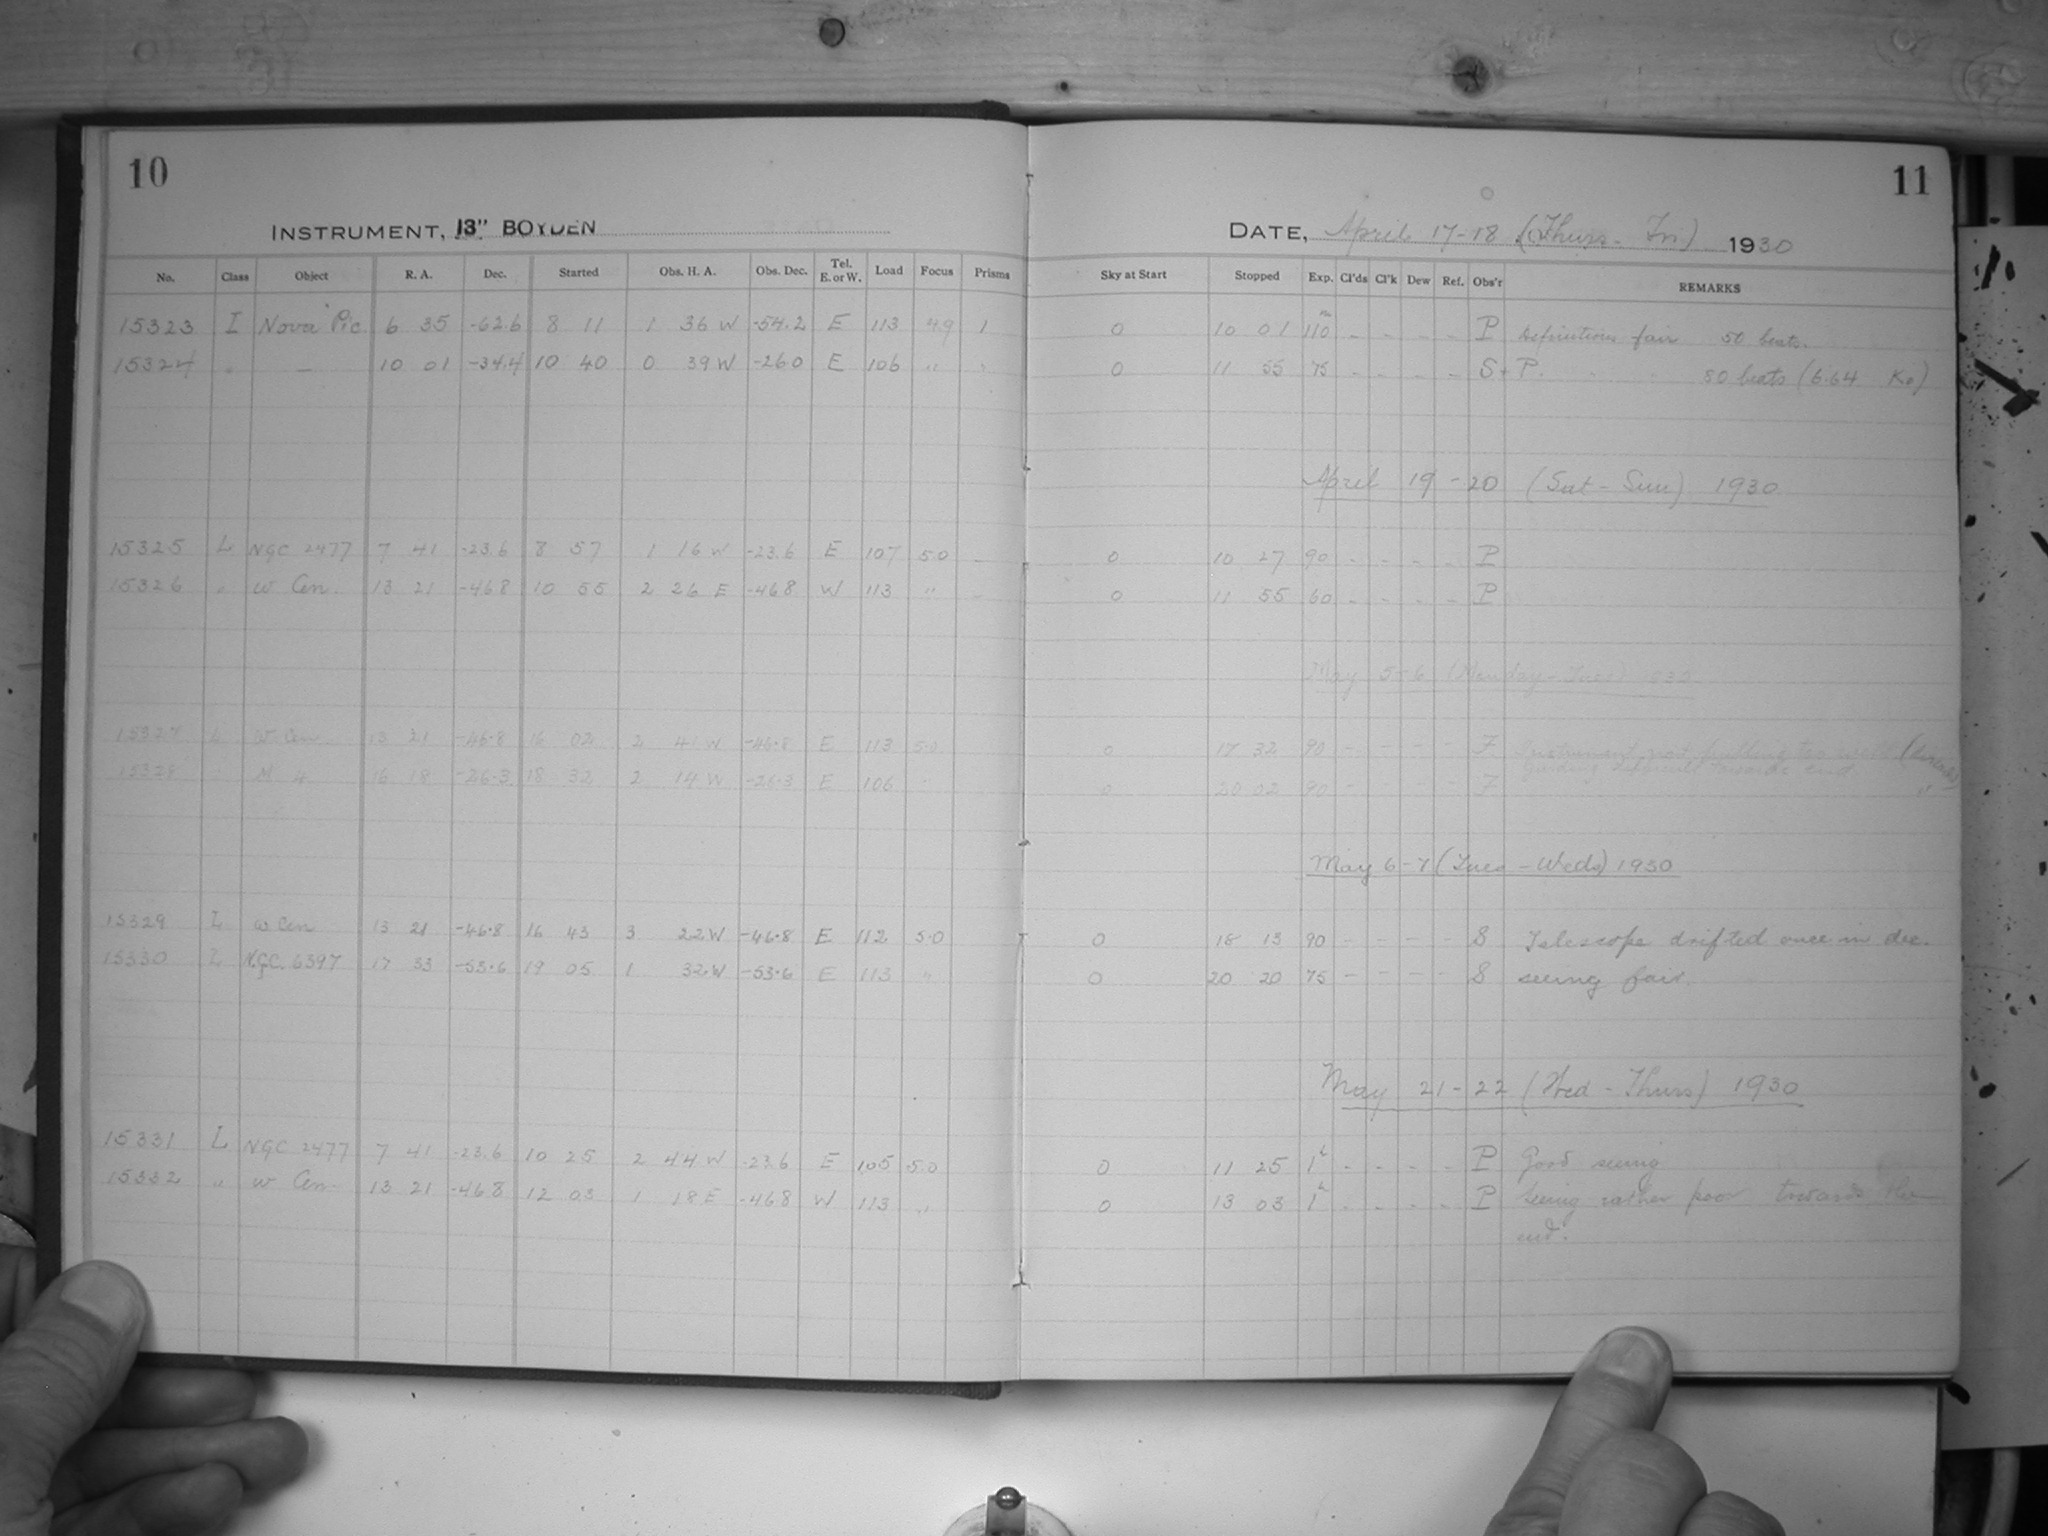 10
INSTRUMENT, 13" BOYDEN
No. Class Object R. A. Dec. Started Obs. H. A. Obs. Dec. Tel. E. or W. Load Focus Prisms
15323 I Nova Pic 6 35 -62.6 8 11 1 36 W -54.2 E 113 4.9 1
15324 " — 10 01 -34.4 10 40 0 39 W -26.0 E 106 " "
15325 L NGC 2477 7 41 -23.6 8 57 1 16 W -23.6 E 107 5.0 -
15326 " w Cen. 13 21 -46.8 10 55 2 26 E -46.8 W 113 " -
15327 L w Cen 13 21 -46.8 16 02 2 41 W -46.8 E 113 5.0
15328 " M 4 16 18 -26.3 18 32 2 14 W -26.3 E 106 "
15329 L w Cen 13 21 -46.8 16 43 3 22 W -46.8 E 112 5.0
15330 L N.G.C. 6397 17 33 -53.6 19 05 1 32 W -53.6 E 113 "
15331 L NGC 2477 7 41 -23.6 10 25 2 44 W -23.6 E 105 5.0
15332 " w Cen 13 21 -46.8 12 03 1 18 E -46.8 W 113 "
11
DATE, April 17-18 (Thurs - Fri) 1930
Sky at Start Stopped Exp. Cl'ds Cl'k Dew Ref. Obs'r REMARKS
0 10 01 110m - - - - P Definitions fair 50 beats.
0 11 55 75 - - - - S + P. 80 beats (6.64 Ko)
April 19-20 (Sat - Sun) 1930
0 10 27 90 - - - - P
0 11 55 60 - - - - P
May 5-6 (Monday - Tues)
0 17 32 90 - - - - F Instrument not
guiding difficult towards end
0 20 02 90 - - - - F "
May 6-7 (Tues - Weds) 1930
0 18 13 90 - - - - S Telescope drifted once in dec.
0 20 20 75 - - - - S seeing fair.
May 21-22 (Wed - Thurs) 1930
0 11 25 1h - - - - P Good seeing
0 13 03 1h - - - - P Seeing rather poor towards the
end.